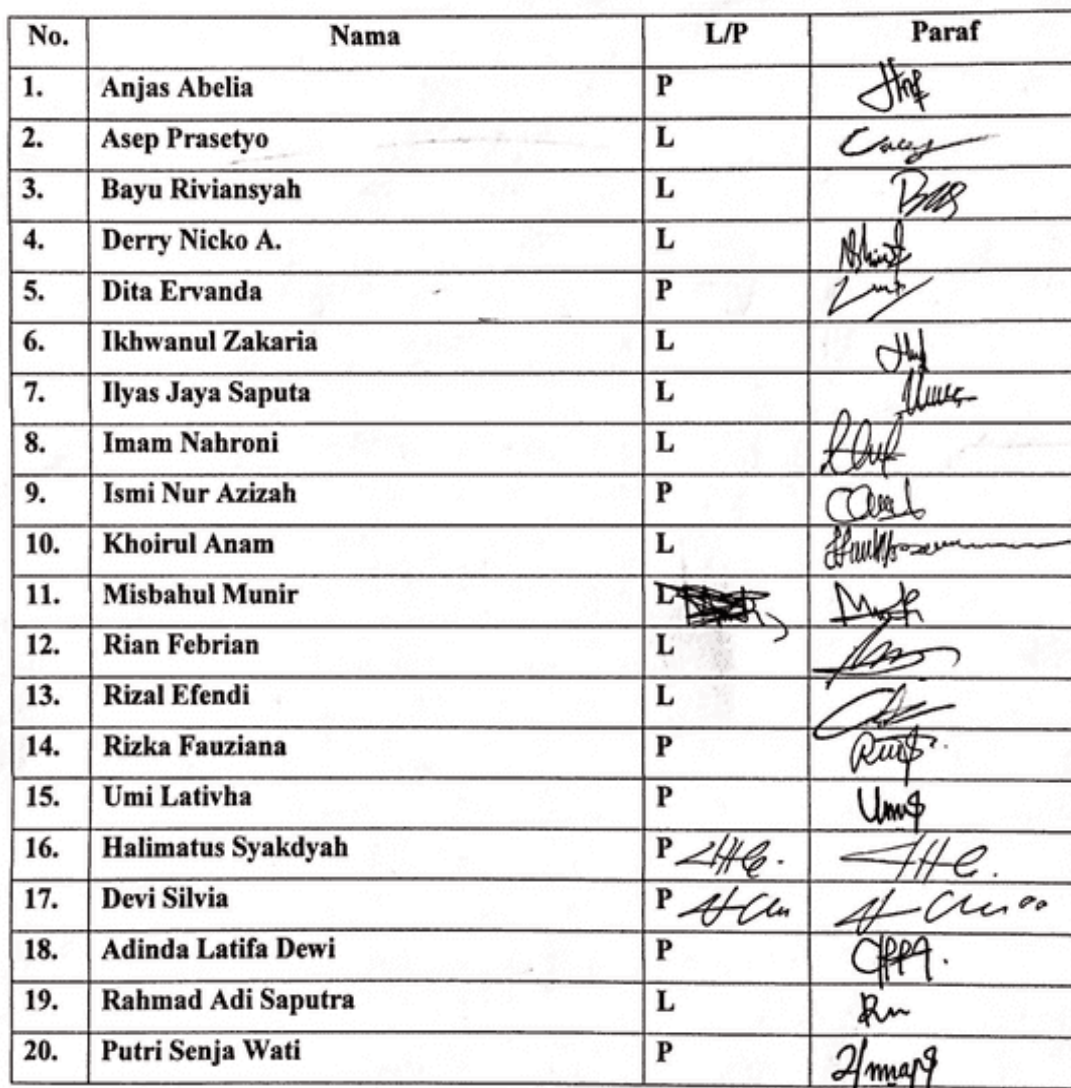 No. Nama L/P Paraf
1. Anjas Abelia P
2. Asep Prasetyo L
3. Bayu Riviansyah L
4. Derry Nicko A. L
5. Dita Ervanda P
6. Ikhwanul Zakaria L
7. Ilyas Jaya Saputa L
8. Imam Nahroni L
9. Ismi Nur Azizah P
10. Khoirul Anam L
11. Misbahul Munir L
12. Rian Febrian L
13. Rizal Efendi L
14. Rizka Fauziana P
15. Umi Lativha P
16. Halimatus Syakdyah P
17. Devi Silvia P
18. Adinda Latifa Dewi P
19. Rahmad Adi Saputra L
20. Putri Senja Wati P